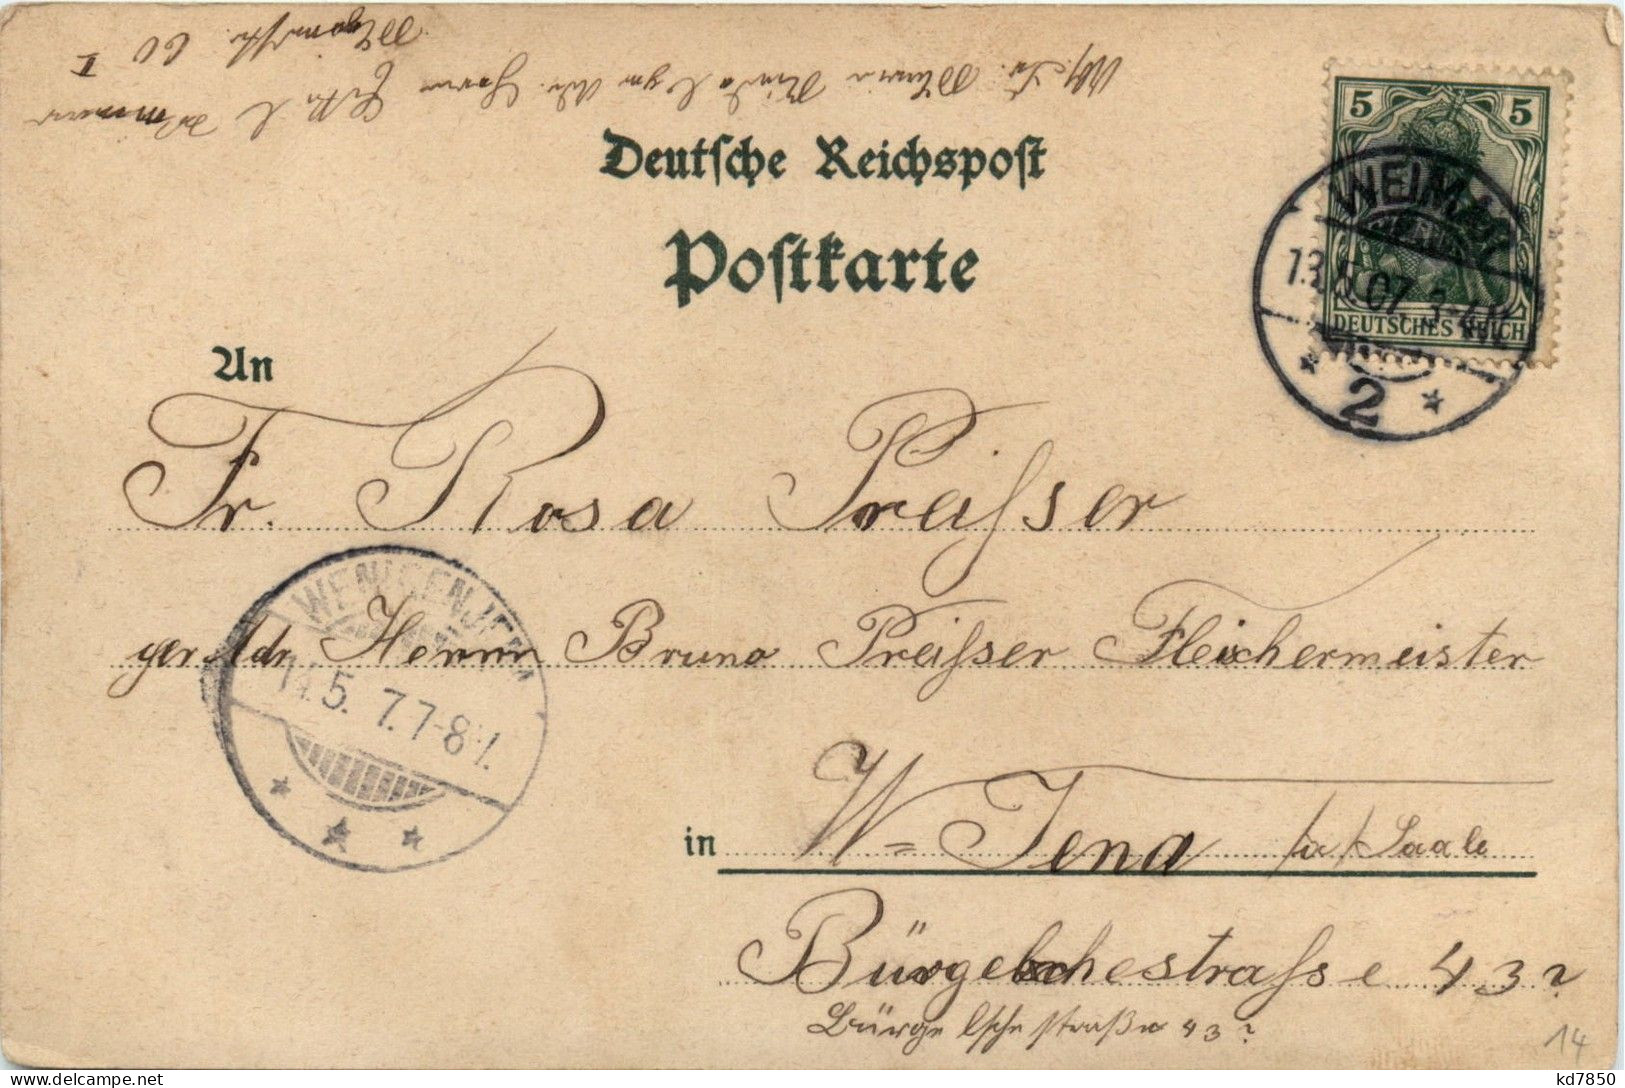 Deutsche Reichspost
Postkarte
5 5
DEUTSCHES REICH
WEIMAR
13.5.07. 3-4N.
* 2 *
An
Fr. Rosa Preisser
per Adr. Herrn Bruno Preisser Fleischermeister
WENIGENJENA
14.5. 7.7-8V.
in W=Jena /a/Saale
Bürgelschestrasse 43?
Bürgelschestraße 43?
14
kd7850